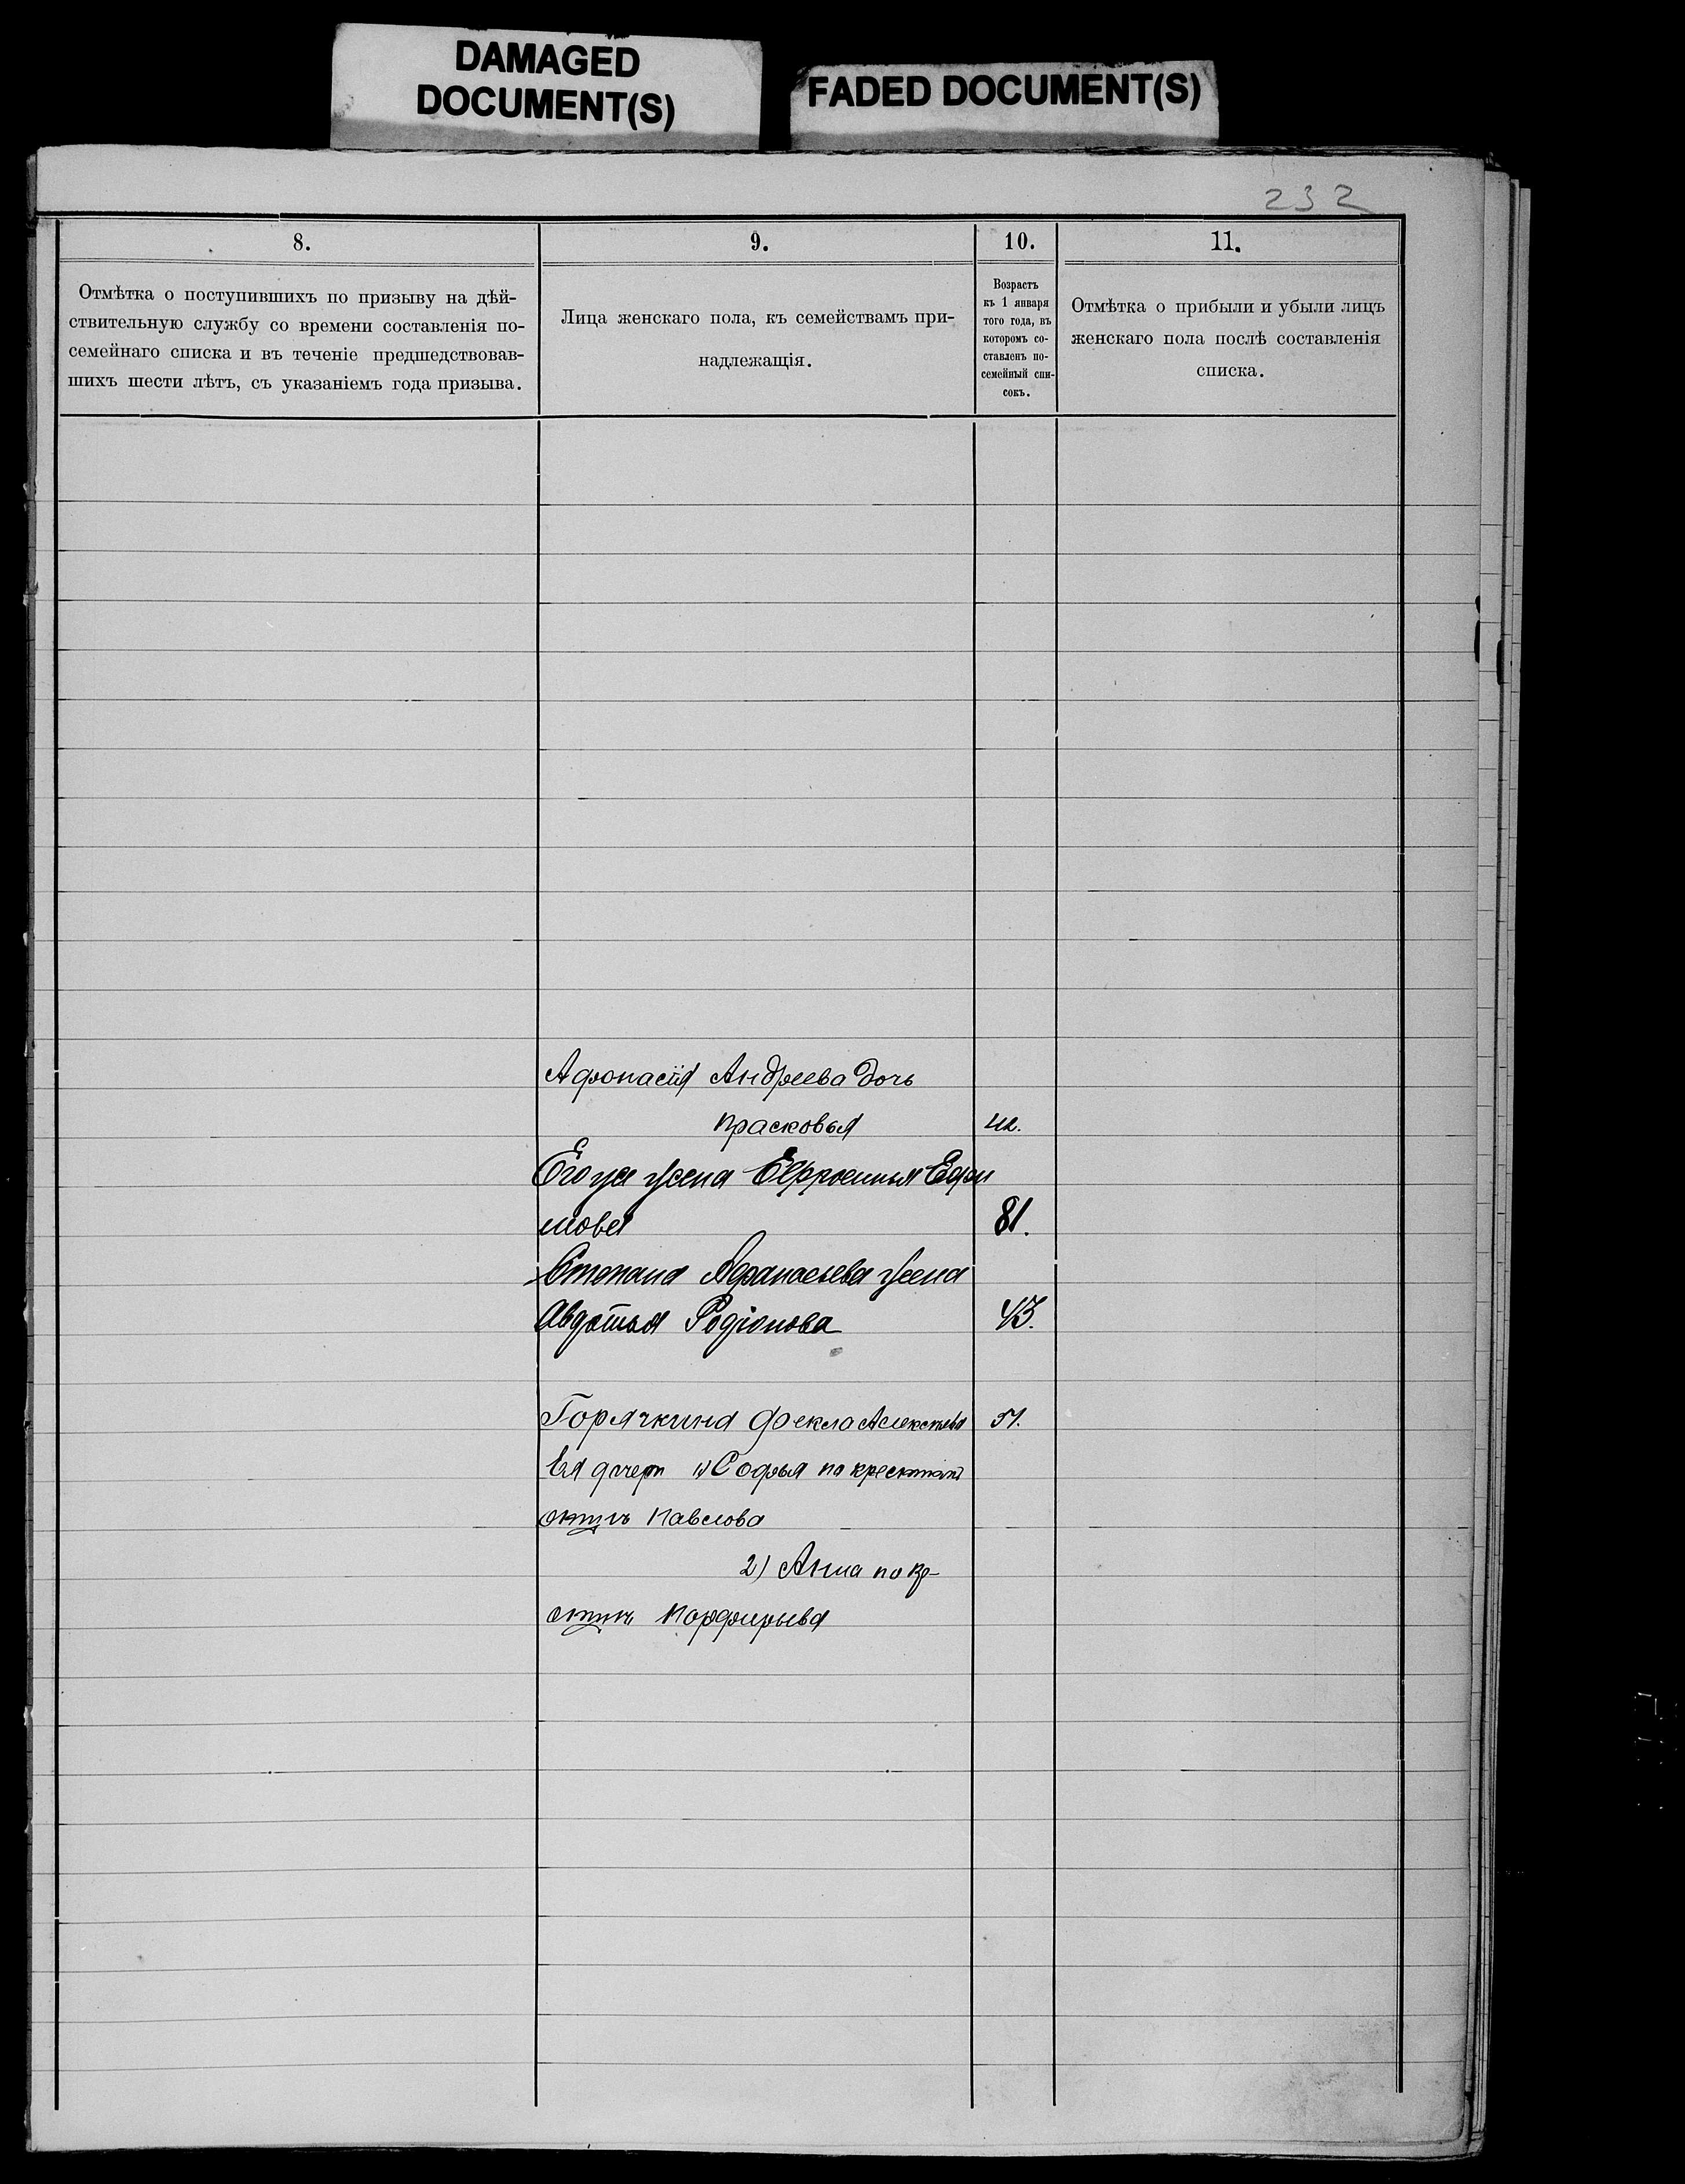 DAMAGED
DOCUMENT(S)
FADED DOCUMENT(S)
232
8.
9.
10.
11.
Отмѣтка о поступившихъ по призыву на дѣй-
ствительную службу со времени составленія по-
семейнаго списка и въ теченіе предшедствовав-
шихъ шести лѣтъ, съ указаніемъ года призыва.
Лица женскаго пола, къ семействамъ при-
надлежащія.
Возрастъ
къ 1 января
того года, въ
которомъ со-
ставленъ по-
семейный спи-
сокъ.
Отмѣтка о прибыли и убыли лицъ
женскаго пола послѣ составленія
списка.
Афонасія Андреева дочь
Прасковья
Его же жена Ефросинья Ефи
мова 81.
Степана Афанасьева жена
Авдотья Родіонова 43.
Горячкина Фекла Алексѣева 51.
Ея дочери 1) Софья по крестном
отцу Павлова
2) Анна по кр-
отцу Порфирьева